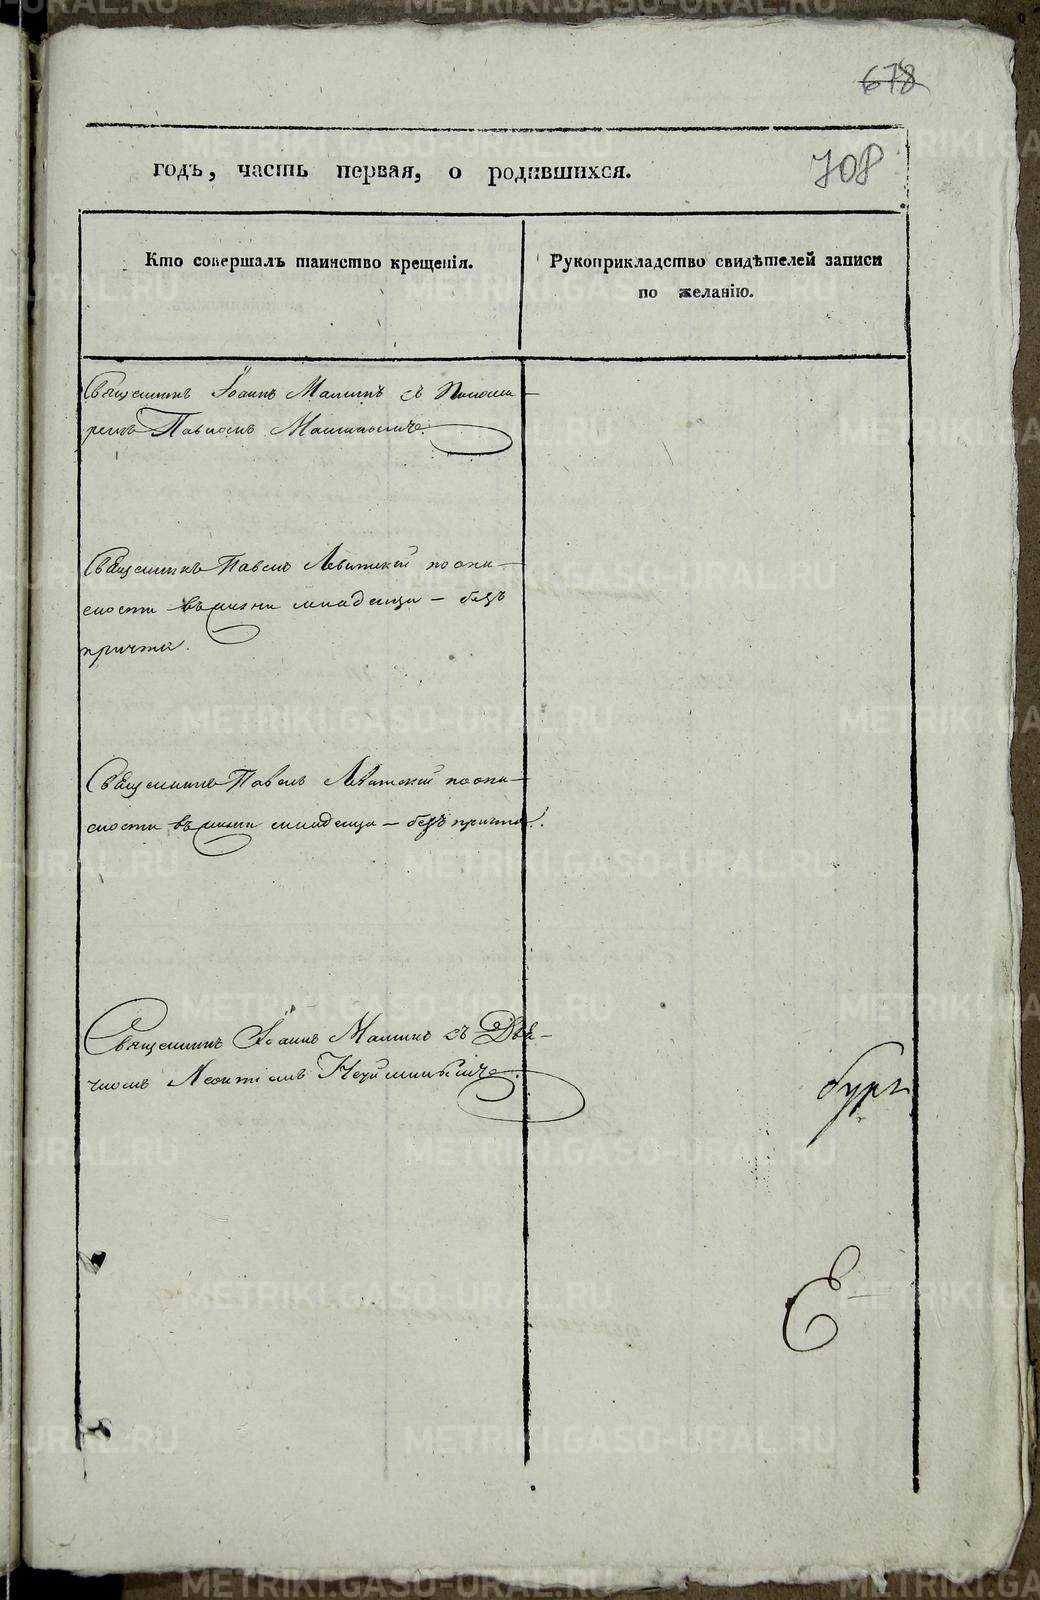 678
708
годъ, часть первая, о родившихся.
Кто совершалъ таинство крещенія.
Рукоприкладство свидѣтелей записи
по желанію.
Священникъ Іоаннъ Малинъ съ Понома-
ремъ Павломъ
Священникъ Павелъ Левитскій по опа-
сности въ жизни младенца – безъ
причта.
Священникъ Павелъ Левитскій по опа-
сности въ жизни младенца – безъ причта.
Священникъ Іоаннъ Малинъ съ Дья-
чкомъ Леонтіемъ
бург
Е
METRIKI.GASO-URAL.RU